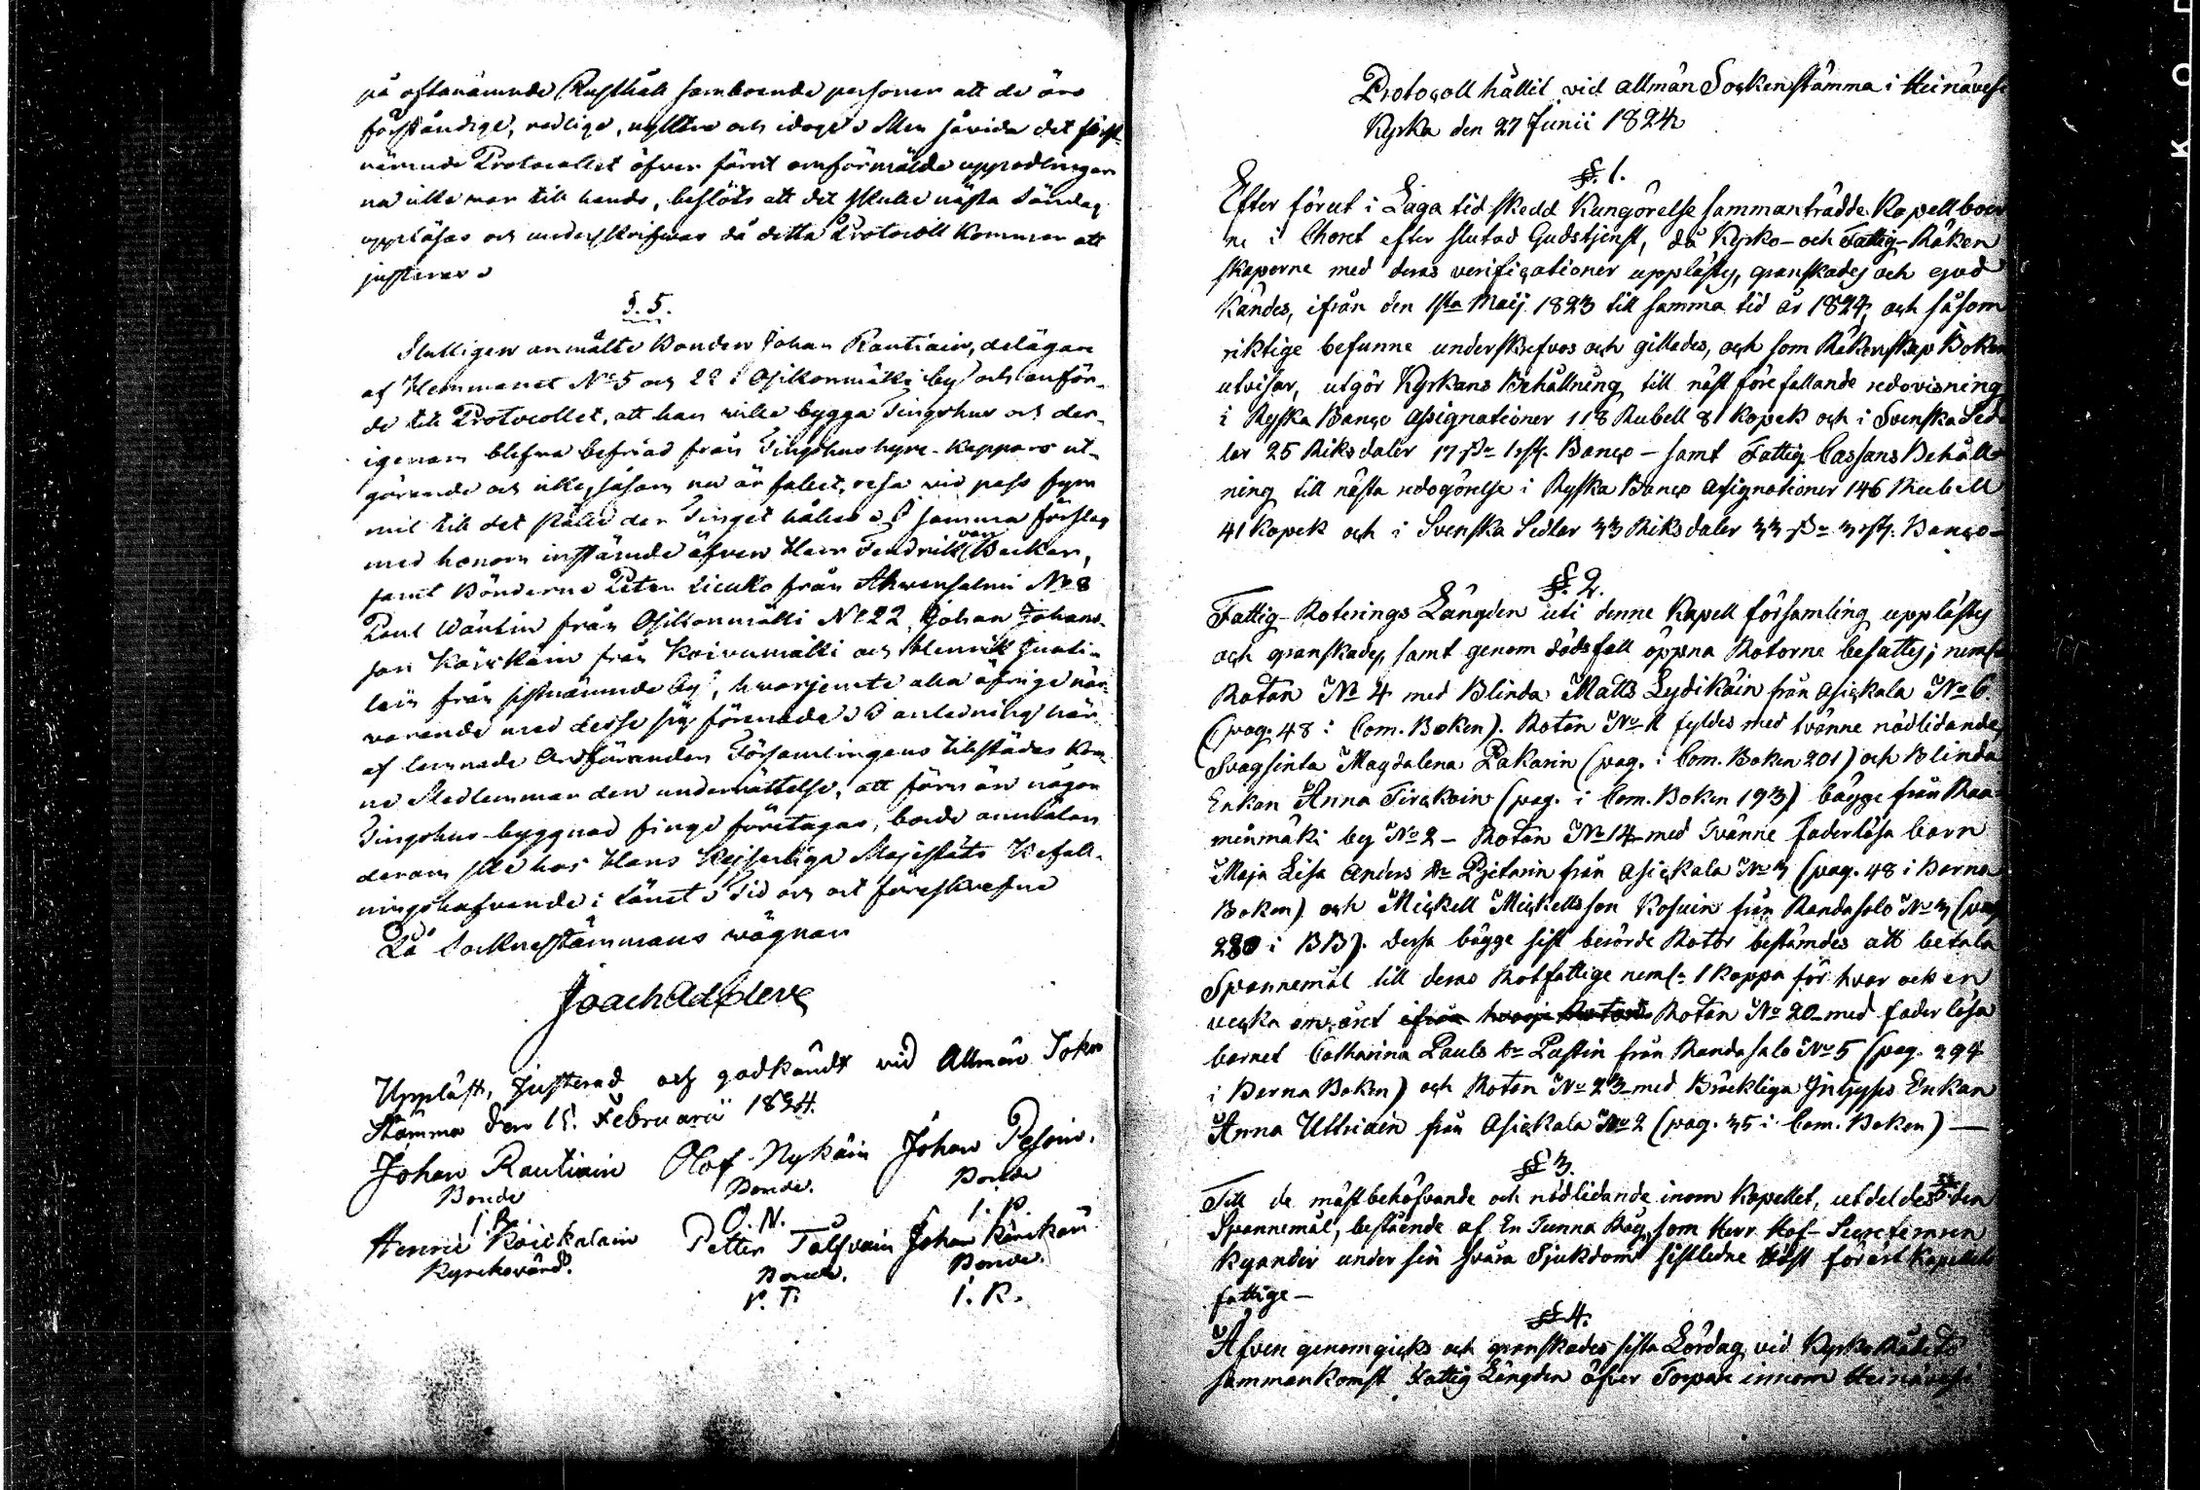 på oftanämnde Rusthåll samboende personer att de äro
förståndige, redlige, nyktra och idoge. Men såvida det först-
nämnde Protocollet öfver förut omförmälde uppodlingar
na icke var till hands, beslöts att det skulle nästa Söndag
uppläsas och underskrifvas då detta Protocoll kommer att
justeras.
§. 5.
Slutligen anmälte Bonden Johan Rautiain, delägare
af Hemmanet No 5 och 22 i Asikonmäki by och anför-
de till Protocollet, att han ville bygga Tingshus och der-
igenom blifva befriad från Tingshushyre-Kappars ut-
görande och icke, såsom nu är fallet, resa vid pass fyra
mil till det ställe der Tinget hålles. I samma förslag
med honom instämde äfven Herr Fendrik von Becker,
samt Bönderna Peter Liuko från Ahvensalmi No 8
Paul Väntin från Asikonmäki No 22, Johan Johans-
son Kärkkäin från Koivumäki och Henrik
från sistnämnde by, hvarjemte alla öfrige när-
varande med desse sig förenade. I anledning här
af lemnade Ordföranden Församlingens tillstädes kom-
ne Medlemmar den underrättelse, att förr än någon
Tingshus-byggnad finge företagas, borde anmälan
derom ske hos Hans Kejserliga Majestäts Befall-
ningshafvande i Länet. Tid och ort föreskrefne
På Socknestämmans vägnar
Joach Adolph
Uppläst, Justerad och godkändt vid Allmän Sokn
Stämma den 15. Februarii 1824.
Johan Rautiain Olof Nykäin Johan Pesoin.
Bonde Bonde. Bonde
I. R. O. N. I. P.
Henric Kaickalain Petter Tolsvain Johan Kärckäin
Kyrckovärd. Bonde. Bonde.
P. T. I. K.
Protocoll hållit vid allmän Sockenstämma i Heinävesi
Kyrka den 27 Junii 1824
§. 1.
Efter förut i Laga tid skedd Kungörelse sammanträdde Kapellboer
ne i Choret efter slutad Gudstjenst, då Kyrko- och Fattig-Räken
skaperne med deras verificationer upplästes, granskades och god
kändes, ifrån den 1sta Maij 1823 till samma tid år 1824, och såsom
riktige befunne underskrefvos och gillades, och som Räkenskap Boken
utvisar, utgör Kyrkans Behållning till näst förefallande redovisning
i Ryska Banco Assignationer 118 Rubell 81 Kopek och i Svenska Sed-
lar 25 Riksdaler 17 Banco - samt Fattig Cassans Behåll-
ning till nästa redogörelse i Ryska Banco Assignationer 146 Rubell
41 Kopek och i Svenska Sedlar 33 Riksdaler 33 Banco -
§. 2.
Fattig-Roterings Längden uti denne Kapell församling upplästes
och granskades, samt genom dödsfall öppna Rotorne besattes; neml.
Rotan No 4 med Blinda Matts Lydikäin från Asickala No 6
(pag. 48 i Com. Boken). Rotan No 11 fyldes med tvänne nödlidande
Svagsinta Magdalena Pakarin (pag. i Com. Boken 201) och Blinda
Enkan Anna Tirckoin (pag. i Com. Boken 193) bägge från Rau-
meinmäki by No 2 - Rotan No 14 med Tvänne faderlösa barn
Maja Lisa Anders dr Pjetarin från Asickala No 3 (pag. 48 i Barna
Boken) och Mickell Mickellsson Kosuin från Randasalo No 3 (pag
280 i BB). Dessa bägge sist berörde Rotor bestämdes att betala
Spannemål till deras Rotfattige neml. 1 Kappa för hvar och en
vecka om året ifrån hvarje Rotan Rotan No 20 med faderlösa
barnet Catharina Pauls dr Pustin från Randasalo No 5 (pag. 294
i Barna Boken) och Rotan No 23 med Bräckliga Enkan
Anna Ulluiain från Asickala No 2 (pag. 35 i Com. Boken) —
§ 3.
Till de mästbehöfvande och nödlidande inom Kapellet, utdeldes den
Spannemål, bestående af En Tunna Råg, som Herr Hof-Secreteraren
Kyander under sin svåra Sjukdom sistledne Höst förärt Kapellets
fattige —
§ 4.
Äfven genomgicks och granskades sista Lördag vid KyrkoRådets
sammankomst Fattig Längden öfver Torpare innom Heinävesi